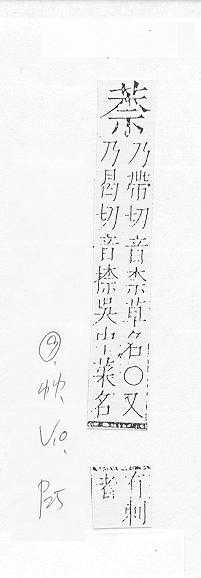 蒳
乃帶切音柰草名○又
乃曷切音捺吳中菜名
有刺
者
⑨
艸
V10.
P25